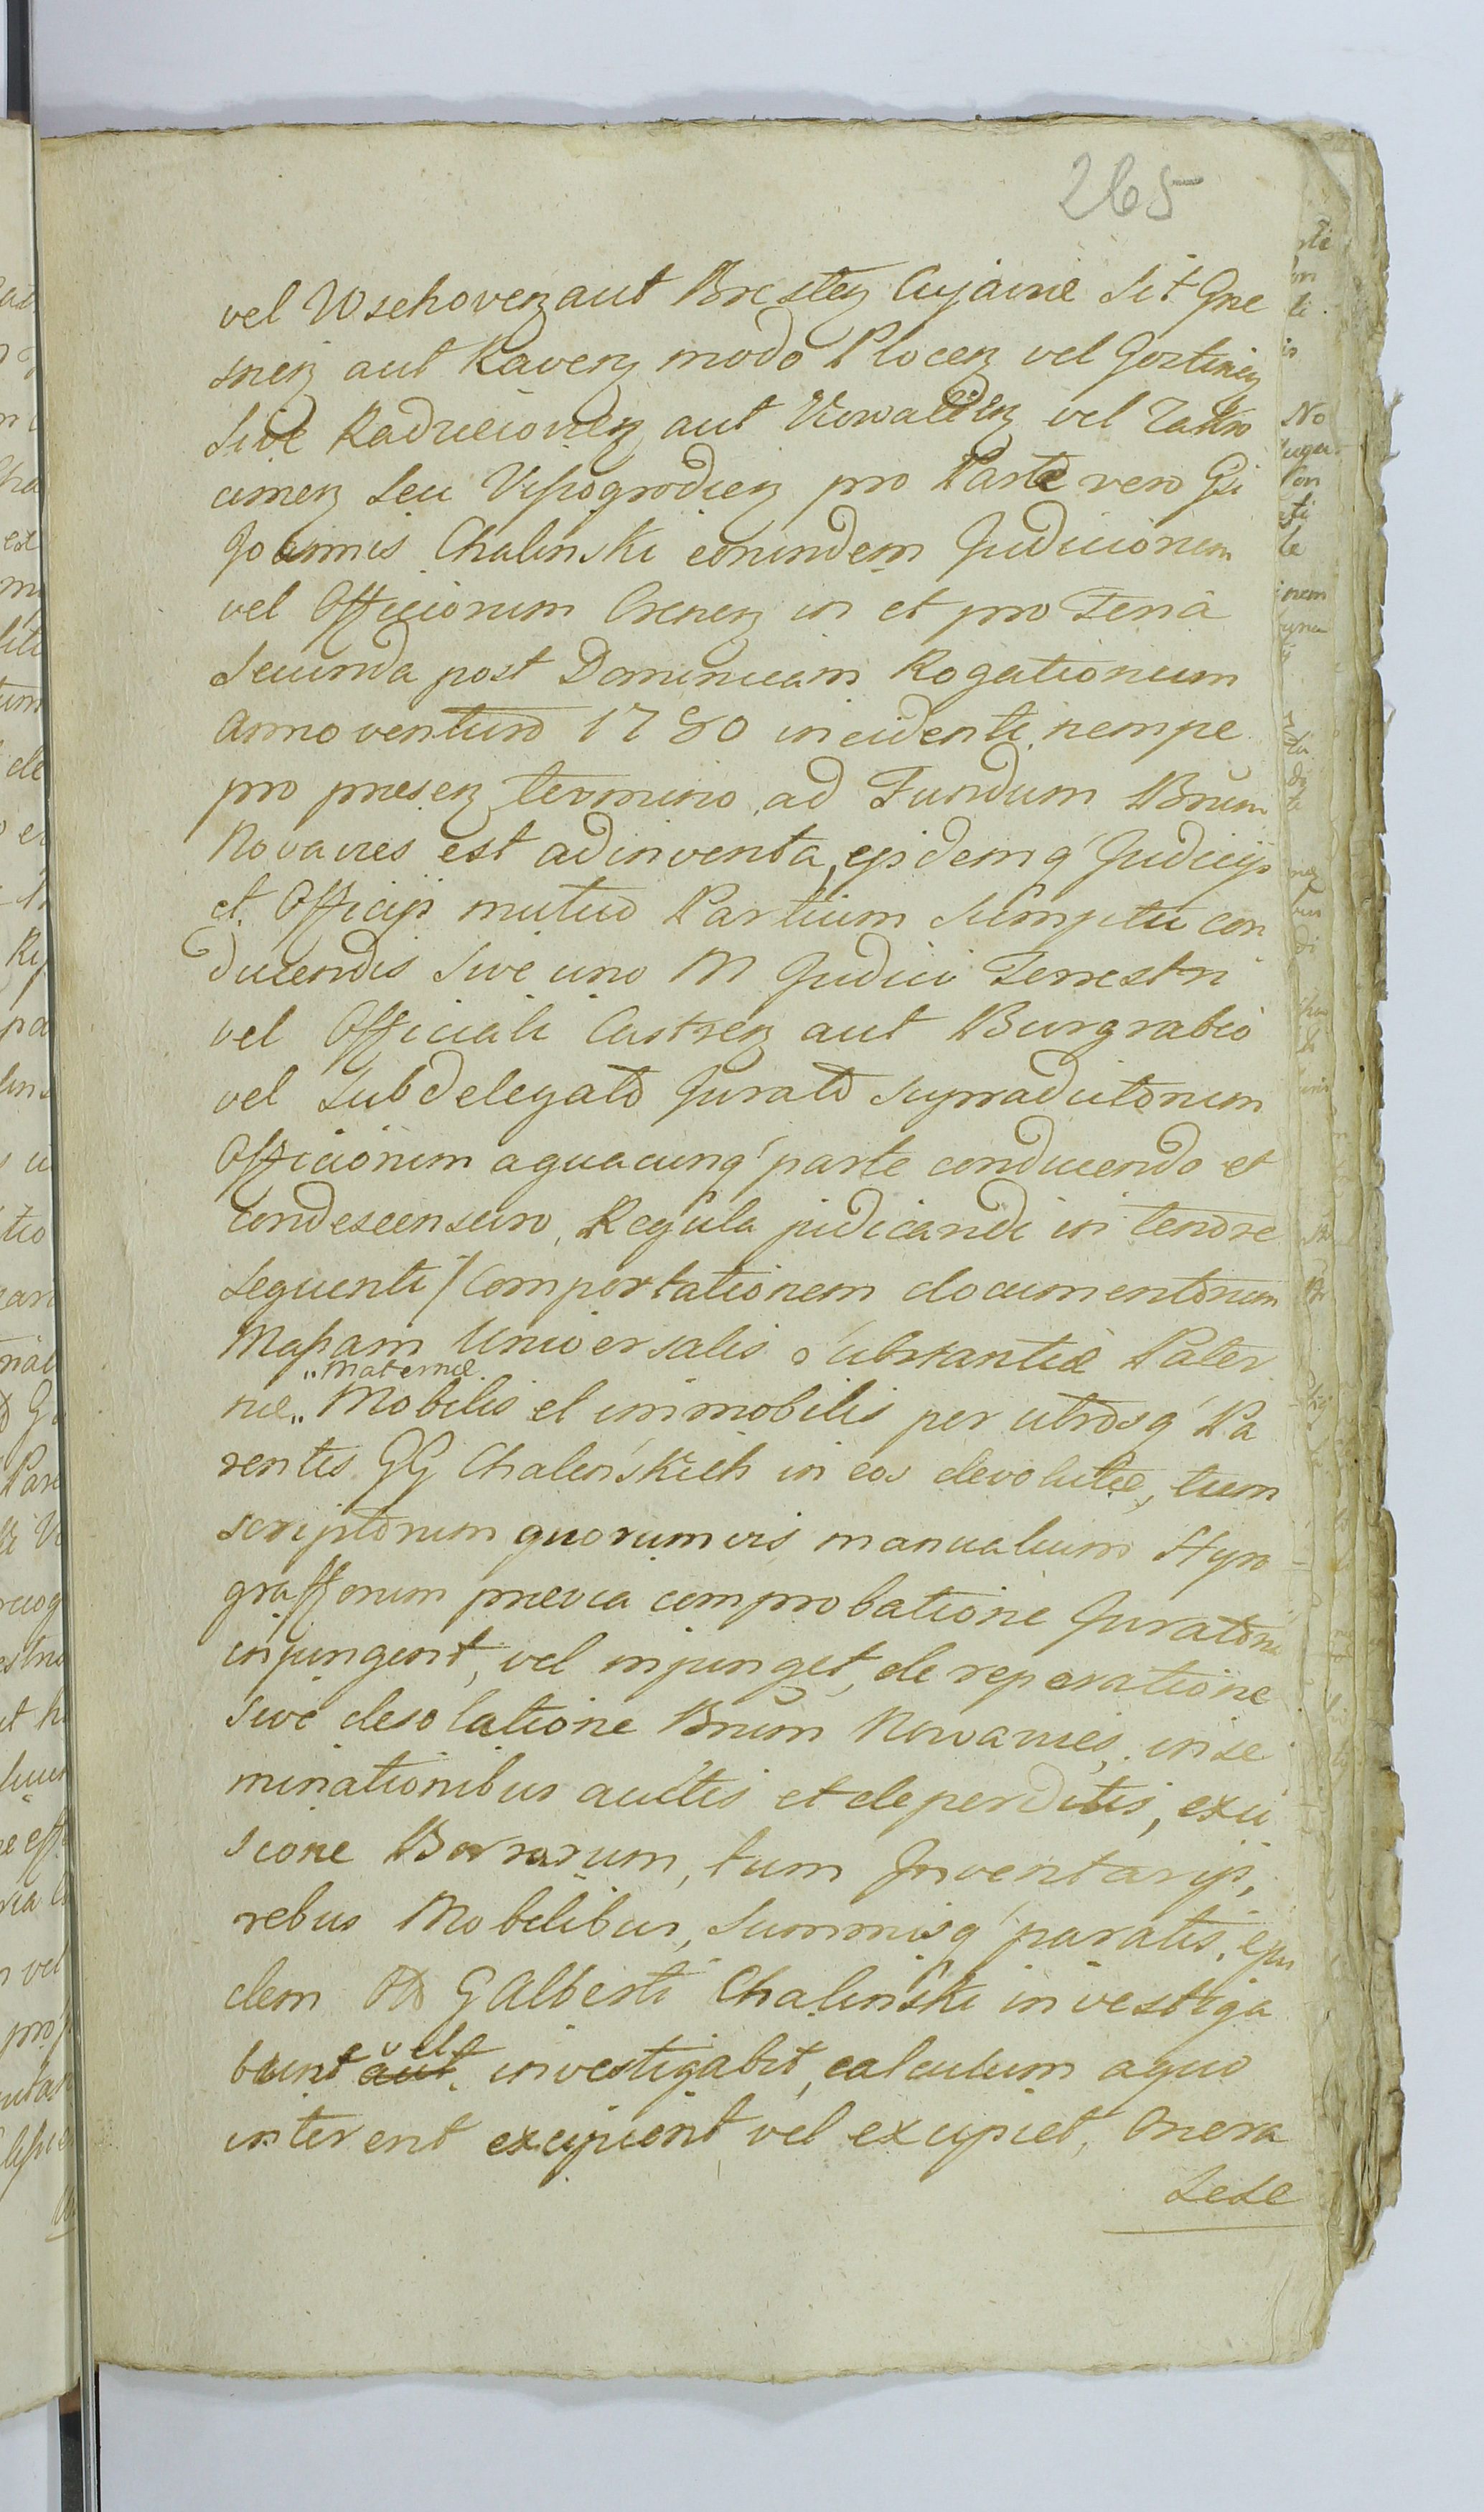 265
vel Wschovenz aut Brestenz Cujaviæ sit Gne
snenz aut Ravenz modo Plocenz vel Gostinenz
sive Radziciovienz aut Kowalienz vel Zakro
cimenz seu Vissogrodienz pro Parte vero Gsi
Joannis Chalinski eorundem Judiciorum
vel Officiorum Crenenz in et pro Feria
secunda post Dominicam Rogationum
Anno venturo 1780 incidenti, nempe
pro præsenz termino ad Fundum Bnum
Novavies est adinventa, ejsdemq' Judicijs
et Officijs mutuo Partium sumptu con
ducendis sive uno M Judici Terrestri
vel Officiali Castrenz aut Burgrabio
vel Subdelegato Jurato supradictorum
Officiorum aquacunq' parte conducendo et
condescensuro, Regula judicandi in tenore
sequenti / Comportationem documentorum
Massam Universalis substantiæ Pater
"Maternæ
næ " Mobilis et immobilis per utrosq' Pa
rentes GG Chalinskich in eos devolutæ, tum
scriptorum quorumvis manualium Hyro
grafforum prævia comprobatione Juratoria
injungent, vel injunget, de reparatione
sive desolatione Bnum Nowavies, inse
minationibus auctis et deperditis, exci
sione Borrarum, tum Inventarijs,
rebus Mobilibus, summisq' paratis, ejus
dem Oto G Alberti Chalinski investiga
vel
bunt aut investigabit, calculum aquo
interent excipient, vel excipiet, Onera
sese